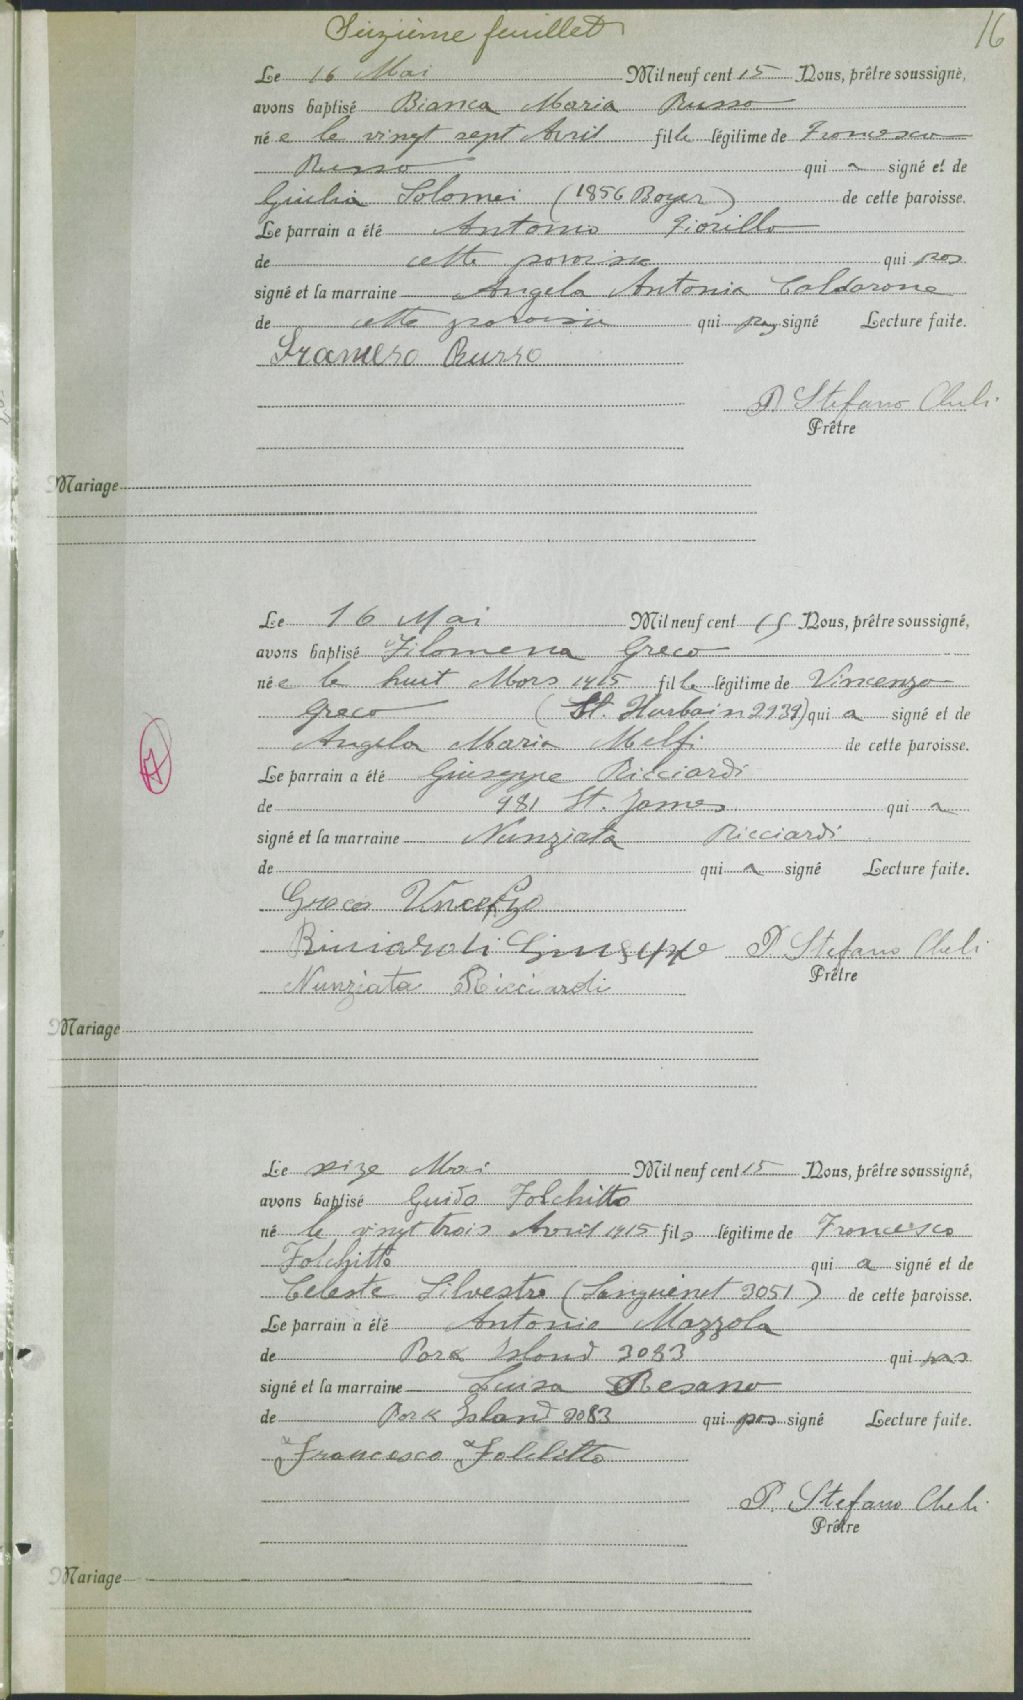 Seizième feuillet
16
Le 16 Mai Mil neuf cent 15 Nous, prêtre soussigné,
avons baptisé Bianca Maria Russo
né e le vingt sept Avril fille légitime de Francesco
Russo qui a signé et de
Giulia Solomei (1856 Boyer) de cette paroisse.
Le parrain a été Antonio Fiorillo
de cette paroisse qui pas
signé et la marraine Angela Antonia Caldarone
de cette paroisse qui pas signé Lecture faite.
Francesco Russo
P. Stefano Cheli
Prêtre
Mariage
Le 16 Mai Mil neuf cent 15 Nous, prêtre soussigné,
avons baptisé Filomena Greco
né e le huit Mars 1915 fille légitime de Vincenzo
Greco (St. Hurbain 2939) qui a signé et de
Angela Maria Melfi de cette paroisse.
Le parrain a été Giuseppe Ricciardi
de 981 St. James qui a
signé et la marraine Nunziata Ricciardi
de qui a signé Lecture faite.
Greco Vincenzo
Ricciardi Giuseppe P. Stefano Cheli
Prêtre
Nunziata Ricciardi
Mariage
Le size Mai Mil neuf cent 15 Nous, prêtre soussigné,
avons baptisé Guido Folchitto
né le vingt trois Avril 1915 fils légitime de Francesco
Folchitto qui a signé et de
Celeste Silvestre (Sanguenet 3051) de cette paroisse.
Le parrain a été Antonio Mazzola
de Park Island 2083 qui pas
signé et la marraine Luisa Resano
de Park Island 2083 qui pas signé Lecture faite.
Francesco Folchitto
P. Stefano Cheli
Prêtre
Mariage